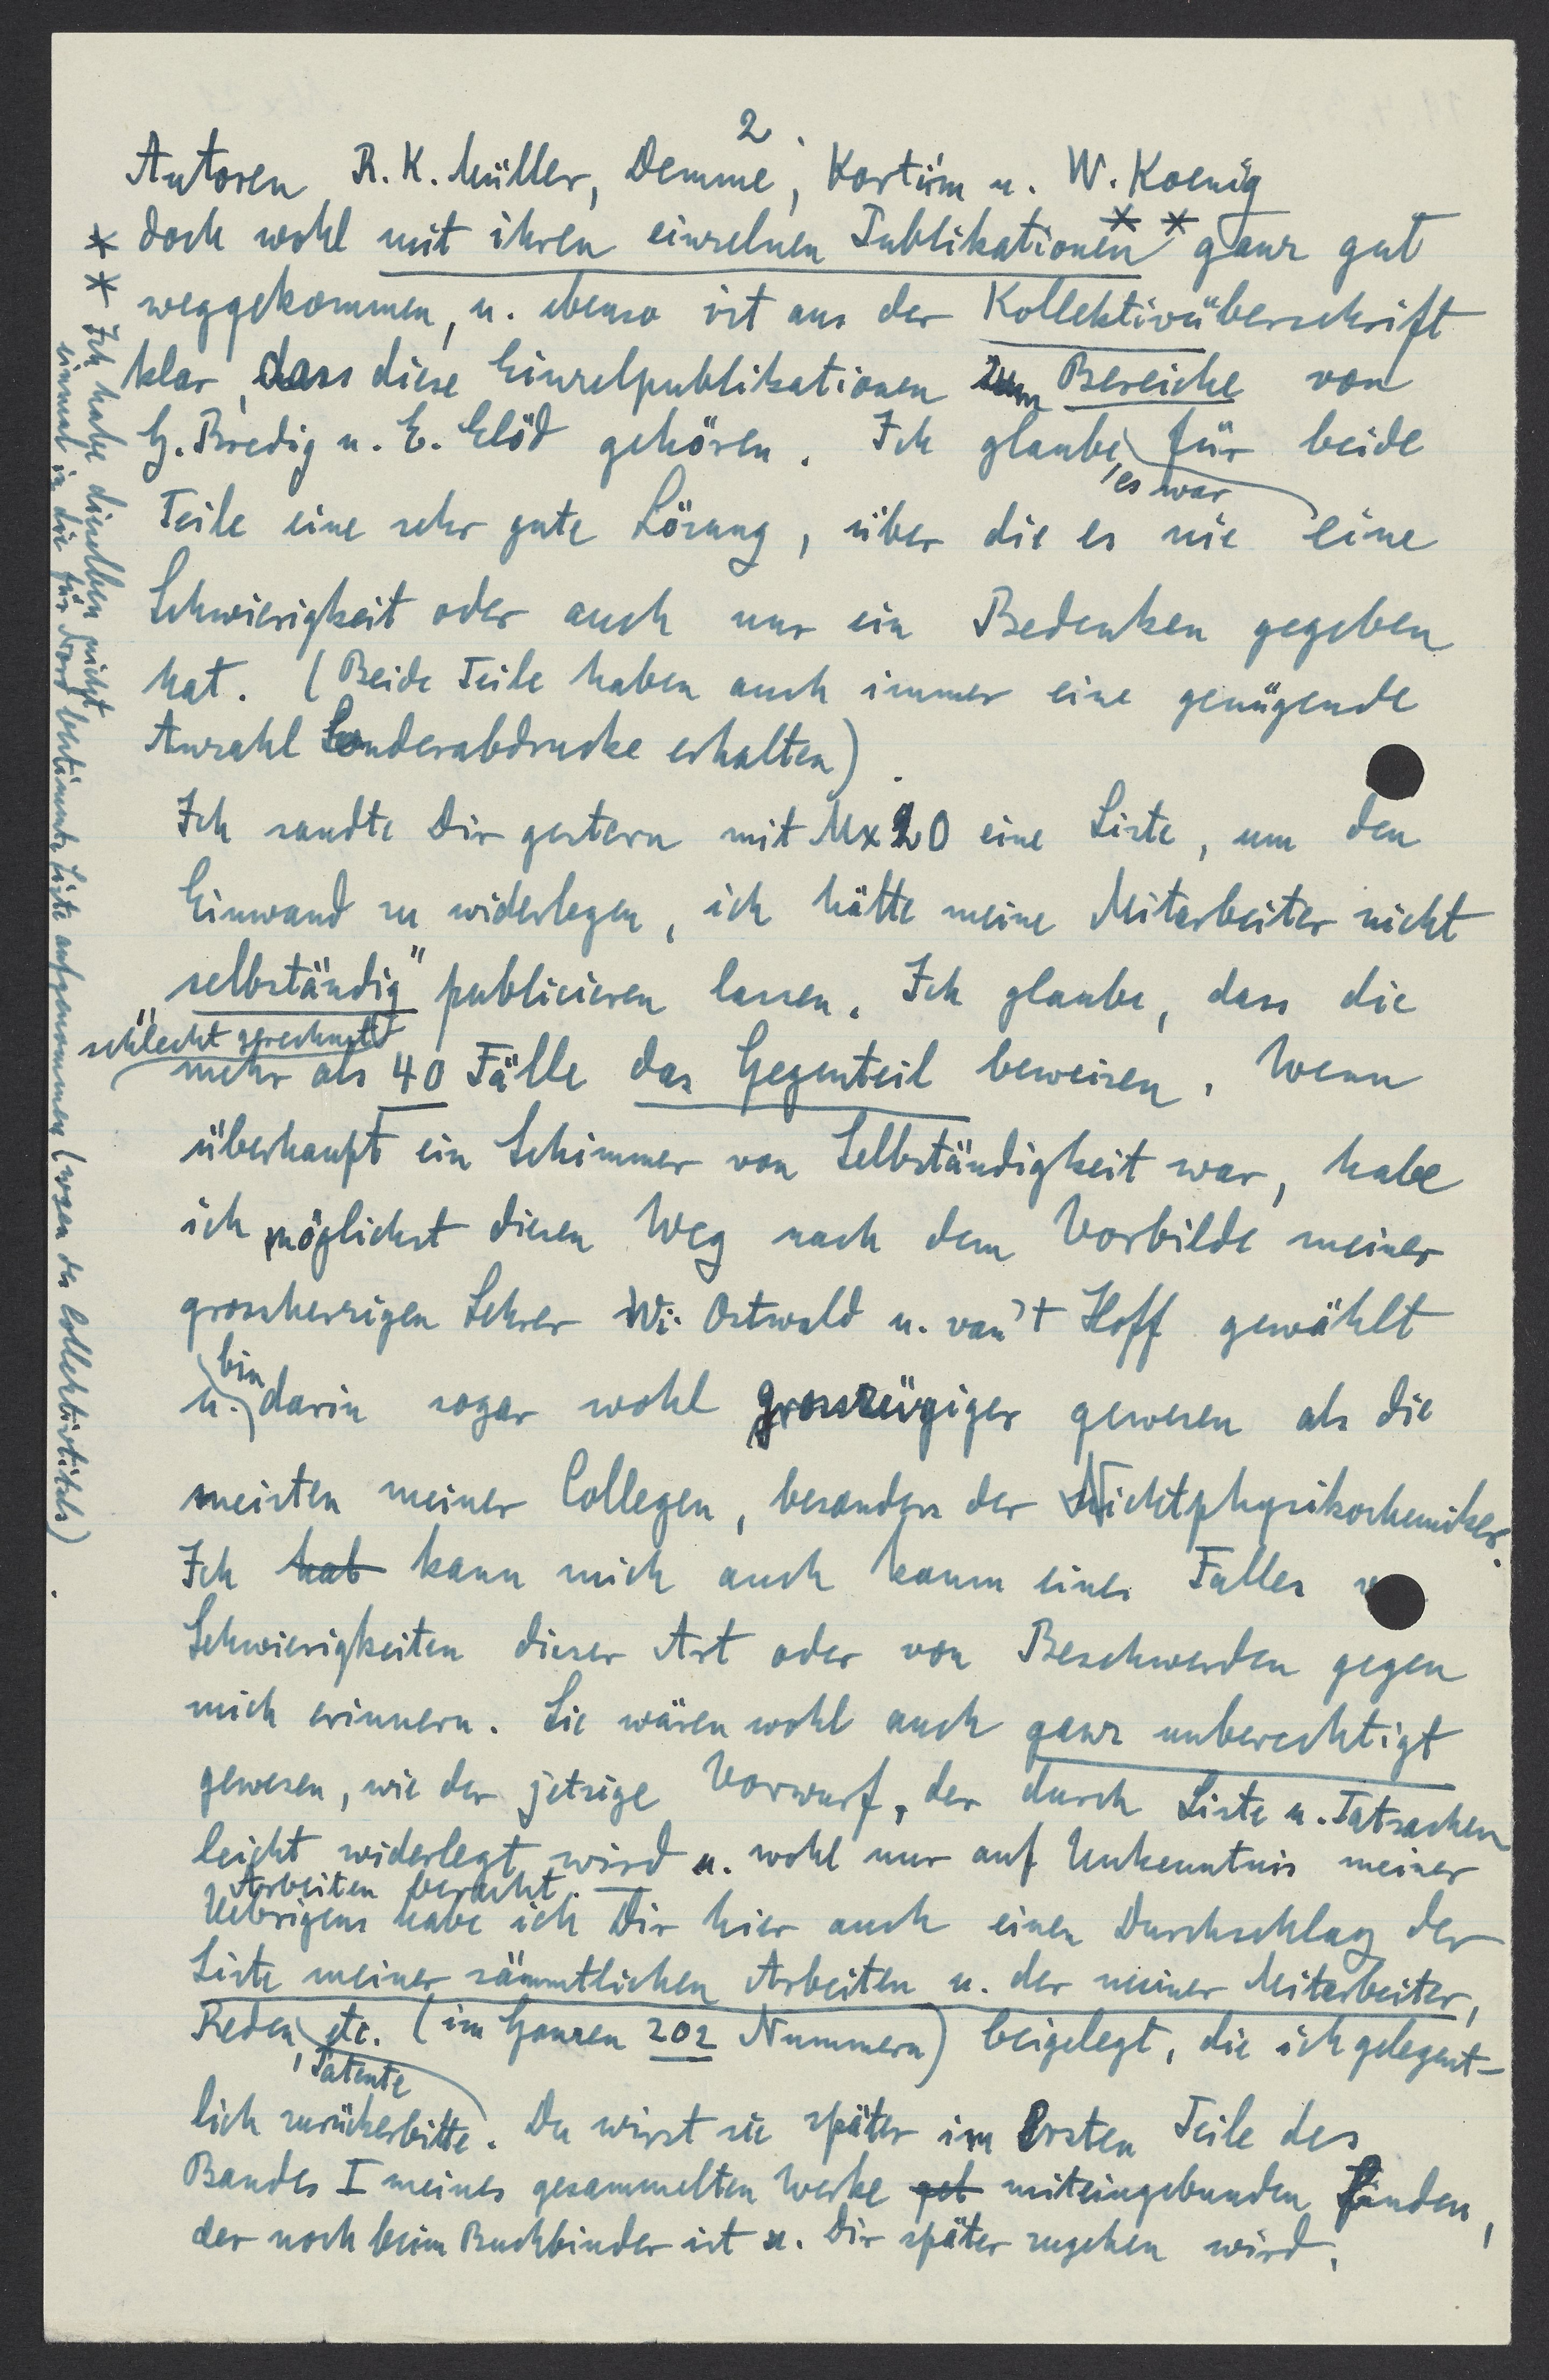 2.
Autoren R. K. Müller, Demme, Kortüm u. W. Koenig
doch wohl mit ihren einzelnen Publikationen ** ganz gut
weggekommen, u. ebenso ist aus der Kollektivüberschrift
klar, dass diese Einzelpublikationen zum Bereiche von
G. Bredig u. E. Elöd gehören. Ich glaube, es war für beide
Teile eine sehr gute Lösung, über die es nie eine
Schwierigkeit oder auch nur ein Bedenken gegeben
hat. (Beide Teile haben auch immer eine genügende
Anzahl Sonderabdrucke erhalten).
Ich sandte Dir gestern mit Mx20 eine Liste, um den
Einwand zu widerlegen, ich hätte meine Mitarbeiter nicht
„selbständig" publicieren lassen. Ich glaube, dass die
schlecht gerechnet
mehr als 40 Fälle das Gegenteil beweisen. Wenn
überhaupt ein Schimmer von Selbständigkeit war, habe
ich möglichst diesen Weg nach dem Vorbilde meiner
grossherzigen Lehrer Wi. Ostwald u. van't Hoff gewählt
u. bin darin sogar wohl grosszügiger gewesen als die
meisten meiner Collegen, besonders der Nichtphysikochemiker.
Ich hab kann mich auch kaum eines Falles
Schwierigkeiten dieser Art oder von Beschwerden gegen
mich erinnern. Sie wären wohl auch ganz unberechtigt
gewesen, wie der jetzige Vorwurf, der durch Liste u. Tatsachen
leicht widerlegt wird u. wohl nur auf Unkenntnis meiner
Arbeiten beruht.
Uebrigens habe ich Dir hier auch einen Durchschlag der
Liste meiner sämmtlichen Arbeiten u. der meiner Mitarbeiter,
Reden, Patente etc. (im Ganzen 202 Nummern) beigelegt, die ich gelegent-
lich zurückerbitte. Du wirst sie später im Ersten Teile des
Bandes I meines gesammelten Werke geb miteingebunden finden,
der noch beim Buchbinder ist u. Dir später zugehen wird.
** Ich habe dieselben nicht
einmal in die für Nord bestimmte Liste aufgenommen (wegen des Collektivtitels)